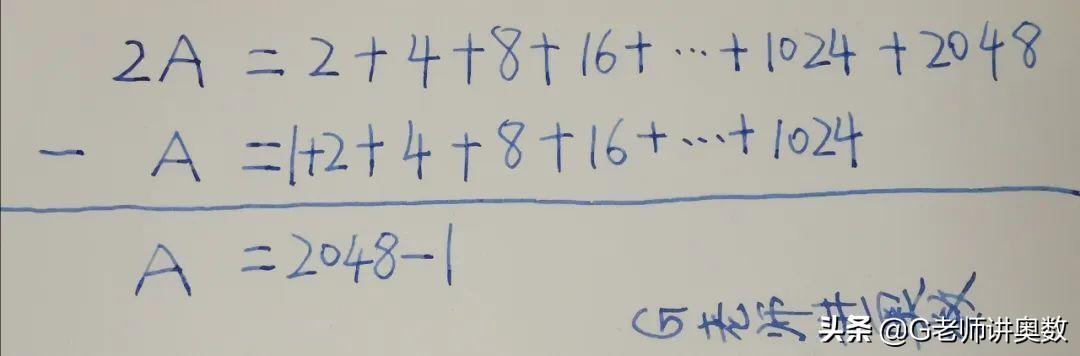 2A = 2+4+8+16+…+1024+2048
- A =1+2+4+8+16+…+1024
A =2048-1
G老师讲奥数
头条 @G老师讲奥数